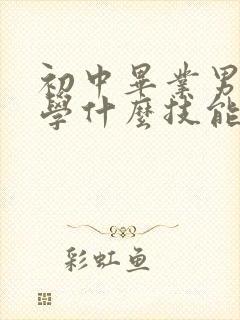 初中畢業男
學什麼技能
彩虹鱼